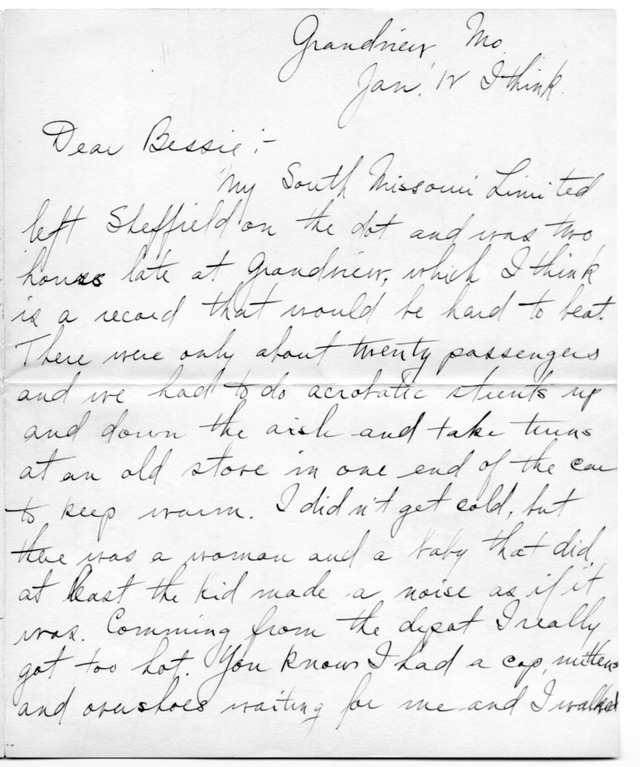 Grandview, Mo.
Jan. 12 I think.
Dear Bessie:-
My South Missouri Limited
left Sheffield on the dot and was two
hours late at Grandview, which I think
is a record that would be hard to beat.
There were only about twenty passengers
and we had to do acrobatic stunts up
and down the aisle and take turns
at an old stove in one end of the car
to keep warm. I didn't get cold, but
there was a woman and a baby that did,
at least the kid made a noise as if it
was. Comming from the depot I really
got too hot. You know I had a cap, mittens
and overshoes waiting for me and I walked